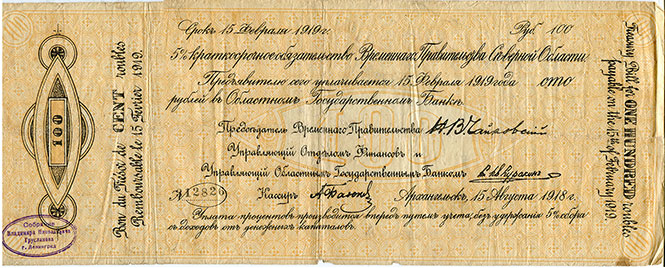 Срокъ 15 Февраля 1919 г.
Руб. 100
5% краткосрочное обязательство Временнаго Правительства Сѣверной Области.
Предъявителю сего уплачивается 15 Февраля 1919 года сто
рублей въ Областномъ Государственномъ Банкѣ.
Предсѣдатель Временнаго Правительства Н.В.Чайковскій
Управляющій Отдѣломъ Финансовъ и
Управляющій Областнымъ Государственнымъ Банкомъ
№ 12820
Кассиръ
Архангельскъ, 15 Августа 1918 г.
Уплата процентовъ производится впередъ путемъ учета, безъ удержанія 5% сбора
съ доходовъ отъ денежныхъ капиталовъ.
100
Bon du Trésor de CENT roubles
Remboursable le 15 Février 1919.
Treasury Bill for ONE HUNDRED roubles
payable on the 15th of February 1919.
Собрание
Владимира
г. Ленинград